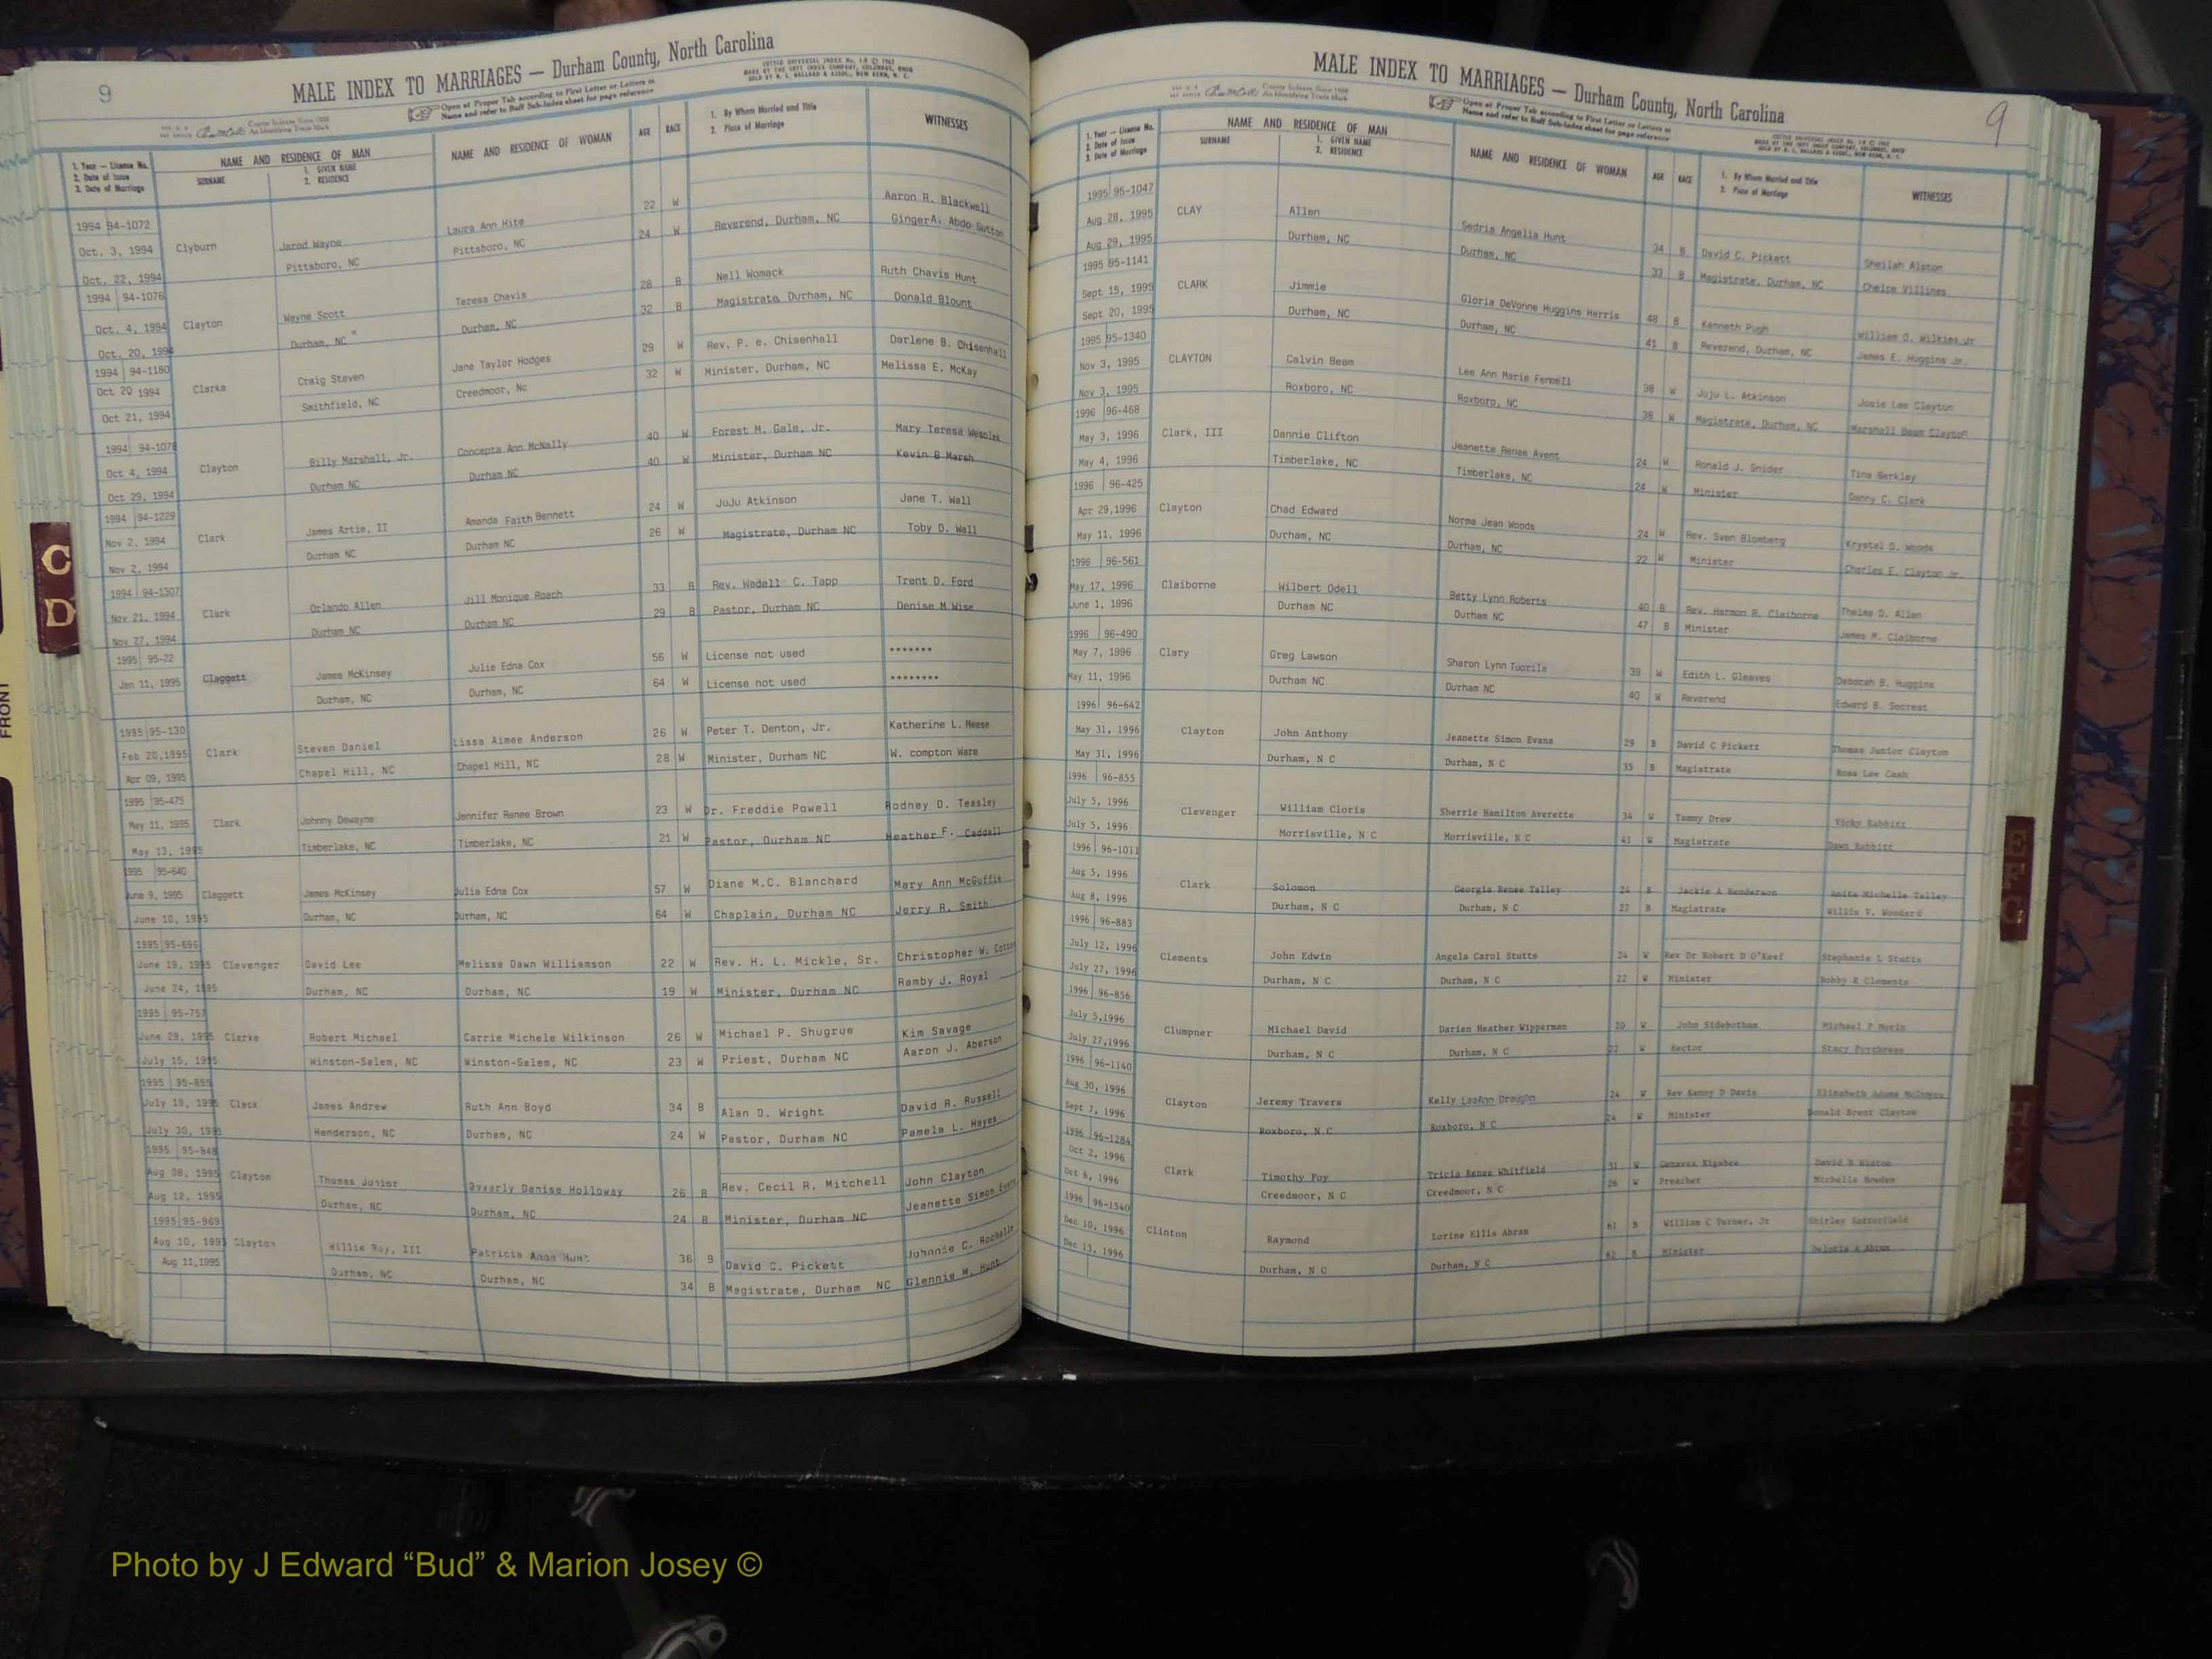 9
MALE INDEX TO MARRIAGES — Durham County, North Carolina
Open at Proper Tab according to First Letter or Letters of
Name and refer to Buff Sub-Index sheet for page reference
1. Year — License No.
2. Date of Issue
3. Date of Marriage
NAME AND RESIDENCE OF MAN
SURNAME
1. GIVEN NAME
2. RESIDENCE
NAME AND RESIDENCE OF WOMAN
AGE
RACE
1. By Whom Married and Title
2. Place of Marriage
WITNESSES
1994 94-1072 22 W Aaron R. Blackwell
Oct. 3, 1994 Clyburn Jarod Wayne Laura Ann Hite 24 W Reverend, Durham, NC Ginger A. Abdo Sutton
Oct. 22, 1994 Pittsboro, NC Pittsboro, NC
1994 94-1076 Teresa Chavis 28 B Nell Womack Ruth Chavis Hunt
Oct. 4, 1994 Clayton Wayne Scott Durham, NC 32 B Magistrate Durham, NC Donald Blount
Oct. 20, 1994 Durham, NC
1994 94-1180 Jane Taylor Hodges 29 W Rev. P. e. Chisenhall Darlene B. Chisenhall
Oct 20 1994 Clarke Craig Steven Creedmoor, Nc 32 W Minister, Durham, NC Melissa E. McKay
Oct 21, 1994 Smithfield, NC
1994 94-1078 Concepta Ann McNally 40 W Forest M. Gale, Jr. Mary Teresa Wesolek
Oct 4, 1994 Clayton Billy Marshall, Jr. Durham NC 40 W Minister, Durham NC Kevin B Marsh
Oct 29, 1994 Durham NC
1994 94-1229 Amanda Faith Bennett 24 W JuJu Atkinson Jane T. Wall
Nov 2, 1994 Clark James Artie, II Durham NC 26 W Magistrate, Durham NC Toby D. Wall
Nov 2, 1994 Durham NC
1994 94-1307 Jill Monique Roach 33 B Rev. Wadell C. Tapp Trent D. Ford
Nov 21, 1994 Clark Orlando Allen Durham NC 29 B Pastor, Durham NC Denise M Wise
Nov 27, 1994 Durham NC
1995 95-22 Julie Edna Cox 56 W License not used *******
Jan 11, 1995 Claggett James McKinsey Durham, NC 64 W License not used ********
Durham, NC
1995 95-130 Lissa Aimee Anderson 26 W Peter T. Denton, Jr. Katherine L. Meese
Feb 20,1995 Clark Steven Daniel Chapel Hill, NC 28 W Minister, Durham NC W. compton Ware
Apr 09, 1995 Chapel Hill, NC
1995 95-475 Jennifer Renee Brown 23 W Dr. Freddie Powell Rodney D. Teasley
May 11, 1995 Clark Johnny Dewayne Timberlake, NC 21 W Pastor, Durham NC Heather F. Caddell
May 13, 1995 Timberlake, NC
1995 95-640 57 W Diane M.C. Blanchard Mary Ann McGuffie
June 9, 1995 Claggett James McKinsey Julia Edna Cox 64 W Chaplain, Durham NC Jerry R. Smith
June 10, 1995 Durham, NC Durham, NC
1995 95-696 Christopher W.
June 19, 1995 Clevenger David Lee Melissa Dawn Williamson 22 W Rev. H. L. Mickle, Sr. Ramby J. Royal
June 24, 1995 Durham, NC Durham, NC 19 W Minister, Durham NC
1995 95-757
June 29, 1995 Clarke Robert Michael Carrie Michele Wilkinson 26 W Michael P. Shugrue Kim Savage
July 15, 1995 Winston-Salem, NC Winston-Salem, NC 23 W Priest, Durham NC Aaron J. Aberson
1995 95-855
July 19, 1995 Clack James Andrew Ruth Ann Boyd 34 B Alan D. Wright David R. Russell
July 30, 1995 Henderson, NC Durham, NC 24 W Pastor, Durham NC Pamela L. Hayes
1995 95-948
Aug 08, 1995 Clayton Thomas Junior Beverly Denise Holloway 26 B Rev. Cecil R. Mitchell John Clayton
Aug 12, 1995 Durham, NC Durham, NC 24 B Minister, Durham NC Jeanette Simon
1995 95-969
Aug 10, 1995 Clayton Willie Roy, III Patricia Anne Hunt 36 B David C. Pickett Johnnie C. Rochelle
Aug 11,1995 Durham, NC Durham, NC 34 B Magistrate, Durham NC Glennie M. Hunt
MALE INDEX TO MARRIAGES — Durham County, North Carolina
9
Open at Proper Tab according to First Letter or Letters of
Name and refer to Buff Sub-Index sheet for page reference
1. Year — License No.
2. Date of Issue
3. Date of Marriage
NAME AND RESIDENCE OF MAN
SURNAME
1. GIVEN NAME
2. RESIDENCE
NAME AND RESIDENCE OF WOMAN
AGE
RACE
1. By Whom Married and Title
2. Place of Marriage
WITNESSES
1995 95-1047
Aug 28, 1995 CLAY Allen Sedria Angelia Hunt 34 B David C. Pickett Sheilah Alston
Aug 29, 1995 Durham, NC Durham, NC 33 B Magistrate, Durham, NC Chelce Villines
1995 95-1141
Sept 15, 1995 CLARK Jimmie Gloria DeVonne Huggins Harris 48 B Kenneth Pugh William O. Wilkins Jr
Sept 20, 1995 Durham, NC Durham, NC 41 B Reverend, Durham, NC James E. Huggins Jr.
1995 95-1340
Nov 3, 1995 CLAYTON Calvin Beam Lee Ann Marie Fennell 38 W Juju L. Atkinson Josie Lee Clayton
Nov 3, 1995 Roxboro, NC Roxboro, NC 38 W Magistrate, Durham, NC Marshall Beam Clayton
1996 96-468
May 3, 1996 Clark, III Dannie Clifton Jeanette Renee Avent 24 W Ronald J. Snider Tina Berkley
May 4, 1996 Timberlake, NC Timberlake, NC 24 W Minister Danny C. Clark
1996 96-425
Apr 29,1996 Clayton Chad Edward Norma Jean Woods 24 W Rev. Sven Blomberg Krystal S. Woods
May 11, 1996 Durham, NC Durham, NC 22 W Minister Charles E. Clayton Jr.
1996 96-561
May 17, 1996 Claiborne Wilbert Odell Betty Lynn Roberts 40 B Rev. Harmon R. Claiborne Thelma D. Allen
June 1, 1996 Durham NC Durham NC 47 B Minister James M. Claiborne
1996 96-490
May 7, 1996 Clary Greg Lawson Sharon Lynn Tuorila 39 W Edith L. Gleaves Deborah B. Huggins
May 11, 1996 Durham NC Durham NC 40 W Reverend Edward B. Secrest
1996 96-642
May 31, 1996 Clayton John Anthony Jeanette Simon Evans 29 B David C Pickett Thomas Junior Clayton
May 31, 1996 Durham, N C Durham, N C 35 B Magistrate Rosa Lee Cash
1996 96-855
July 5, 1996 Clevenger William Cloris Sherrie Hamilton Averette 34 W Tammy Drew Vicky Rabbitt
July 5, 1996 Morrisville, N C Morrisville, N C 41 W Magistrate Dawn Rabbitt
1996 96-1011
Aug 5, 1996 Clark Solomon Georgia Renee Talley 24 B Jackie A Henderson Anita Michelle Talley
Aug 8, 1996 Durham, N C Durham, N C 22 B Magistrate Willie V. Woodard
1996 96-883
July 12, 1996 Clements John Edwin Angela Carol Stutts 24 W Rev Dr Robert D O'Keef Stephanie L Stutts
July 27, 1996 Durham, N C Durham, N C 22 W Minister Bobby R Clements
1996 96-856
July 5,1996 Clumpner Michael David Darien Heather Wipperman 20 W John Sidebotham Michael P Morin
July 27,1996 Durham, N C Durham, N C 22 W Rector Stacy
1996 96-1140
Aug 30, 1996 Clayton Jeremy Travers Kelly LeeAnn Draughn 24 W Rev Kenny D Davis Elizabeth Adams
Sept 7, 1996 Roxboro, N C Roxboro, N C 24 W Minister Donald Brent Clayton
1996 96-1284
Oct 2, 1996 Clark Timothy Foy Tricia Renee Whitfield 31 W David
Oct 6, 1996 Creedmoor, N C Creedmoor, N C 26 W Preacher Michelle Bowden
1996 96-1540
Dec 10, 1996 Clinton Raymond Lorine Ellis Abram 61 B William C Turner, Jr Shirley Satterfield
Dec 13, 1996 Durham, N C Durham, N C 62 B Minister Deloris A Abram
C
D
FRONT
Photo by J Edward “Bud” & Marion Josey ©